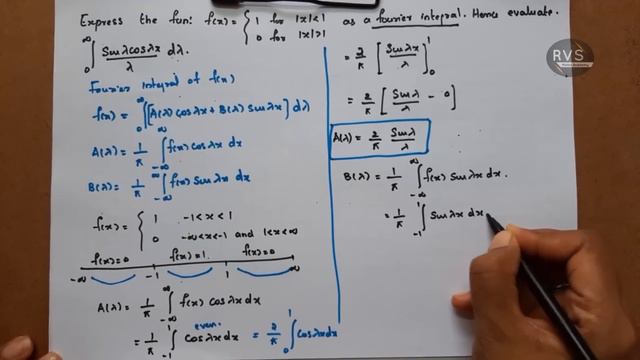 Express the fun: f(x) = { 1 for |x|<1 as a fourier integral. Hence evaluate.
0 for |x|>1
∫₀^∞ Sinλcosλx/λ dλ.
Fourier integral of f(x)
f(x) = ∫₀^∞ [A(λ) cosλx + B(λ) Sinλx] dλ
A(λ) = 1/π ∫_{-∞}^{∞} f(x) cosλx dx
B(λ) = 1/π ∫_{-∞}^{∞} f(x) Sinλx dx
f(x) = { 1 -1<x<1
0 -∞<x<-1 and 1<x<∞
f(x)=0 f(x)=1. f(x)=0
-∞ -1 1 ∞
A(λ) = 1/π ∫_{-∞}^{∞} f(x) cosλx dx
even.
= 1/π ∫_{-1}^{1} cosλx dx = 2/π ∫₀^1 cosλx dx
= 2/π [Sinλx/λ]₀^1
= 2/π [Sinλ/λ - 0]
A(λ) = 2/π Sinλ/λ
B(λ) = 1/π ∫_{-∞}^{∞} f(x) Sinλx dx.
= 1/π ∫_{-1}^{1} Sinλx dx
RVS